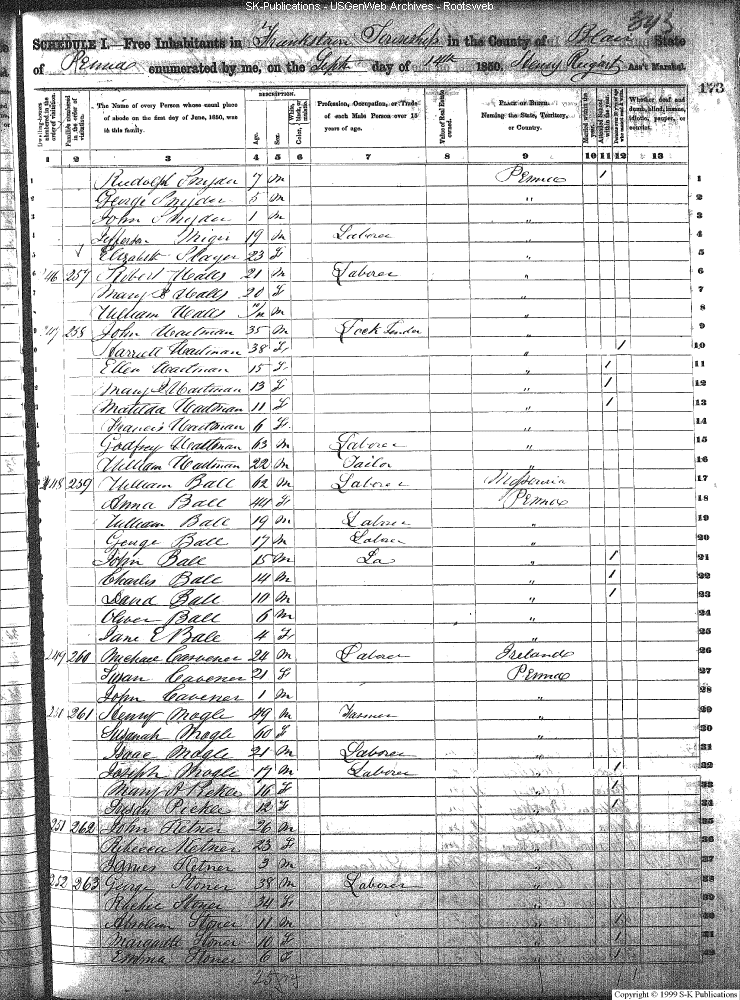 SK-Publications - USGenWeb Archives - Rootsweb
343
SCHEDULE I.—Free Inhabitants in Frankstown Township in the County of Blair State
of Penna enumerated by me, on the Sept day of 14th 1850. Henry Ass't Marshal.
173
DESCRIPTION.
Dwelling-houses numbered in the order of visitation.
Families numbered in the order of visitation.
The Name of every Person whose usual place of abode on the first day of June, 1850, was in this family.
Age.
Sex.
Color, White, black, or mulatto.
Profession, Occupation, or Trade of each Male Person over 15 years of age.
Value of Real Estate owned.
PLACE OF BIRTH. Naming the State, Territory, or Country.
Married within the year.
Attended School within the year.
Whether deaf and dumb, blind, insane, idiotic, pauper, or convict.
1 2 3 4 5 6 7 8 9 10 11 12 13
1 Rudolph Snyder 7 m Penna / 1
George Snyder 5 m " 2
John Snyder 1 m " 3
Jefferson 19 m Laborer " 4
Elizabeth Slayer 23 f " 5
257 Robert Walls 21 m Laborer " 6
Mary Walls 20 f " 7
William Walls m " 8
258 John Waitman 35 m Lock Tender " 9
Harriett Waitman 38 f " / 10
Ellen Waitman 15 f " / 11
Mary Waitman 13 f " / 12
Matilda Waitman 11 f " / 13
Francis Waitman 6 f " 14
Godfrey Waitman 63 m Laborer " 15
William Waitman 22 m Tailor " 16
259 William Ball 62 m Laborer 17
Anna Ball 44 f Penna 18
William Ball 19 m Laborer " 19
George Ball 17 m Labor " 20
John Ball 15 m La " / 21
Charles Ball 14 m " / 22
David Ball 10 m " / 23
Oliver Ball 6 m " 24
Jane E Ball 4 f " 25
249 260 Michael Cavener 24 m Laborer Ireland 26
Susan Cavener 21 f Penna 27
John Cavener 1 m " 28
251 261 Henry Mogle 49 m Farmer " 29
Susanah Mogle 60 f " 30
Isaac Mogle 21 m Laborer " 31
Joseph Mogle 17 m Laborer " / 32
Mary A 16 f " /
Susan 12 f " /
251 262 John Hetner 26 m "
Rebecca Hetner 23 f "
James Hetner 3 m "
252 263 George Stoner 38 m Laborer "
Stoner 34 f "
Abraham Stoner 11 m " /
Margarett Stoner 10 f " /
Emma Stoner 6 f " /
Copyright © 1999 S-K Publications